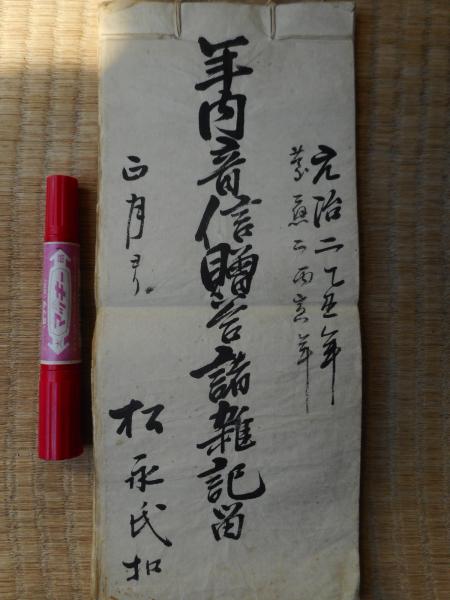 元治二乙丑年
慶應二丙寅年
年内音信贈答諸雑記留
正月ヨリ
松永氏扣
マッキー